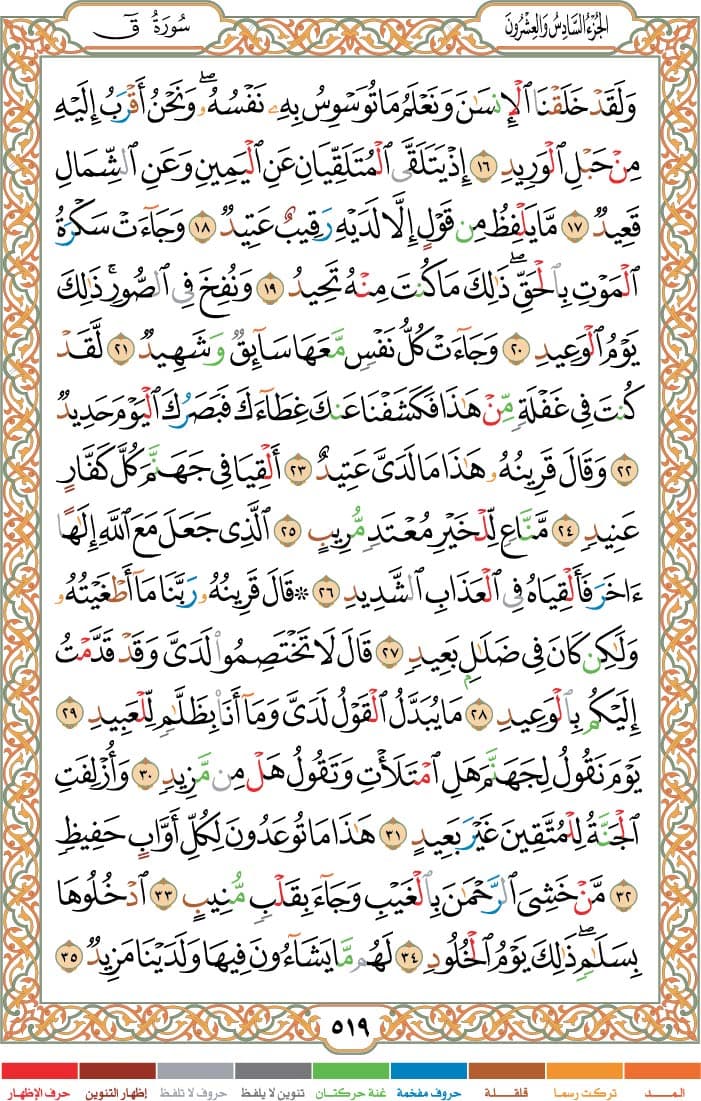 الجُزْءُ السَّادِسُ وَالعِشْرُونَ
سُورَةُ قٓ
وَلَقَدْ خَلَقْنَا ٱلْإِنسَٰنَ وَنَعْلَمُ مَا تُوَسْوِسُ بِهِۦ نَفْسُهُۥ ۖ وَنَحْنُ أَقْرَبُ إِلَيْهِ
مِنْ حَبْلِ ٱلْوَرِيدِ ١٦ إِذْ يَتَلَقَّى ٱلْمُتَلَقِّيَانِ عَنِ ٱلْيَمِينِ وَعَنِ ٱلشِّمَالِ
قَعِيدٌ ١٧ مَّا يَلْفِظُ مِن قَوْلٍ إِلَّا لَدَيْهِ رَقِيبٌ عَتِيدٌ ١٨ وَجَآءَتْ سَكْرَةُ
ٱلْمَوْتِ بِٱلْحَقِّ ۖ ذَٰلِكَ مَا كُنتَ مِنْهُ تَحِيدُ ١٩ وَنُفِخَ فِى ٱلصُّورِ ۚ ذَٰلِكَ
يَوْمُ ٱلْوَعِيدِ ٢٠ وَجَآءَتْ كُلُّ نَفْسٍ مَّعَهَا سَآئِقٌ وَشَهِيدٌ ٢١ لَّقَدْ
كُنتَ فِى غَفْلَةٍ مِّنْ هَٰذَا فَكَشَفْنَا عَنكَ غِطَآءَكَ فَبَصَرُكَ ٱلْيَوْمَ حَدِيدٌ
٢٢ وَقَالَ قَرِينُهُۥ هَٰذَا مَا لَدَىَّ عَتِيدٌ ٢٣ أَلْقِيَا فِى جَهَنَّمَ كُلَّ كَفَّارٍ
عَنِيدٍ ٢٤ مَّنَّاعٍ لِّلْخَيْرِ مُعْتَدٍ مُّرِيبٍ ٢٥ ٱلَّذِى جَعَلَ مَعَ ٱللَّهِ إِلَٰهًا
ءَاخَرَ فَأَلْقِيَاهُ فِى ٱلْعَذَابِ ٱلشَّدِيدِ ٢٦ ۞ قَالَ قَرِينُهُۥ رَبَّنَا مَآ أَطْغَيْتُهُۥ
وَلَٰكِن كَانَ فِى ضَلَٰلٍۭ بَعِيدٍ ٢٧ قَالَ لَا تَخْتَصِمُوا۟ لَدَىَّ وَقَدْ قَدَّمْتُ
إِلَيْكُم بِٱلْوَعِيدِ ٢٨ مَا يُبَدَّلُ ٱلْقَوْلُ لَدَىَّ وَمَآ أَنَا۠ بِظَلَّٰمٍ لِّلْعَبِيدِ ٢٩
يَوْمَ نَقُولُ لِجَهَنَّمَ هَلِ ٱمْتَلَأْتِ وَتَقُولُ هَلْ مِن مَّزِيدٍ ٣٠ وَأُزْلِفَتِ
ٱلْجَنَّةُ لِلْمُتَّقِينَ غَيْرَ بَعِيدٍ ٣١ هَٰذَا مَا تُوعَدُونَ لِكُلِّ أَوَّابٍ حَفِيظٍ
٣٢ مَّنْ خَشِىَ ٱلرَّحْمَٰنَ بِٱلْغَيْبِ وَجَآءَ بِقَلْبٍ مُّنِيبٍ ٣٣ ٱدْخُلُوهَا
بِسَلَٰمٍ ۖ ذَٰلِكَ يَوْمُ ٱلْخُلُودِ ٣٤ لَهُم مَّا يَشَآءُونَ فِيهَا وَلَدَيْنَا مَزِيدٌ ٣٥
٥١٩
المـــد تركت رسما قلقـلة حروف مفخمة غنة حركتان تنوين لا يلفظ حروف لا تلفظ إظهار التنوين حرف الإظهار